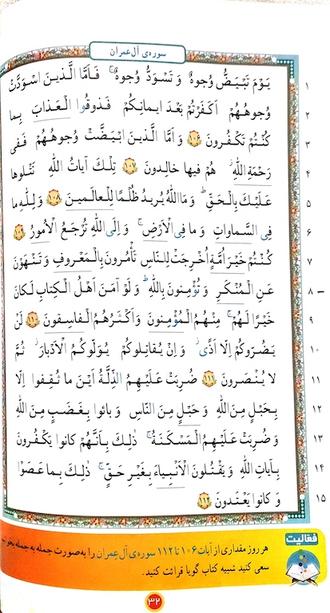 سوره‌ی آل عمران
۱ يَوْمَ تَبْيَضُّ وُجوهٌ وَ تَسْوَدُّ وُجوهٌ ۚ فَأَمَّا الَّذينَ اسْوَدَّتْ
۲ وُجوهُهُمْ أَكَفَرْتُمْ بَعْدَ ايمانِكُمْ فَذوقُوا الْعَذابَ بِما
۳ كُنْتُمْ تَكْفُرونَ ۝۱۰۶ وَ أَمَّا الَّذينَ ابْيَضَّتْ وُجوهُهُمْ فَفی
۴ رَحْمَةِ اللّٰهِ ۖ هُمْ فيها خالِدونَ ۝۱۰۷ تِلْكَ آياتُ اللّٰهِ نَتْلوها
۵ عَلَيْكَ بِالْحَقِّ ۗ وَ مَا اللّٰهُ يُريدُ ظُلْمًا لِلْعالَمينَ ۝۱۰۸ وَ لِلّٰهِ ما
۶ فِی السَّماواتِ وَ ما فِی الْاَرْضِ ۚ وَ إِلَی اللّٰهِ تُرْجَعُ الْاُمورُ ۝۱۰۹
۷ كُنْتُمْ خَيْرَ أُمَّةٍ أُخْرِجَتْ لِلنّاسِ تَأْمُرونَ بِالْمَعْروفِ وَ تَنْهَوْنَ
۸ عَنِ الْمُنْكَرِ وَ تُؤْمِنونَ بِاللّٰهِ ۗ وَ لَوْ آمَنَ أَهْلُ الْكِتابِ لَكانَ
۹ خَيْرًا لَهُمْ ۚ مِنْهُمُ الْمُؤْمِنونَ وَ أَكْثَرُهُمُ الْفاسِقونَ ۝۱۱۰ لَنْ
۱۰ يَضُرّوكُمْ إِلّا أَذًی ۖ وَ إِنْ يُقاتِلوكُمْ يُوَلّوكُمُ الْاَدْبارَ ۖ ثُمَّ
۱۱ لا يُنْصَرونَ ۝۱۱۱ ضُرِبَتْ عَلَيْهِمُ الذِّلَّةُ أَيْنَ ما ثُقِفوا إِلّا
۱۲ بِحَبْلٍ مِنَ اللّٰهِ وَ حَبْلٍ مِنَ النّاسِ وَ باءُوا بِغَضَبٍ مِنَ اللّٰهِ
۱۳ وَ ضُرِبَتْ عَلَيْهِمُ الْمَسْكَنَةُ ۚ ذٰلِكَ بِأَنَّهُمْ كانوا يَكْفُرونَ
۱۴ بِآياتِ اللّٰهِ وَ يَقْتُلونَ الْاَنْبِياءَ بِغَيْرِ حَقٍّ ۚ ذٰلِكَ بِما عَصَوْا
۱۵ وَ كانوا يَعْتَدونَ ۝۱۱۲
فعّالیت
هر روز مقداری از آیات ۱۰۶ تا ۱۱۲ سوره‌ی آل عمران را به‌صورت جمله به جمله
سعی کنید شبیه کتاب گویا قرائت کنید.
۳۲